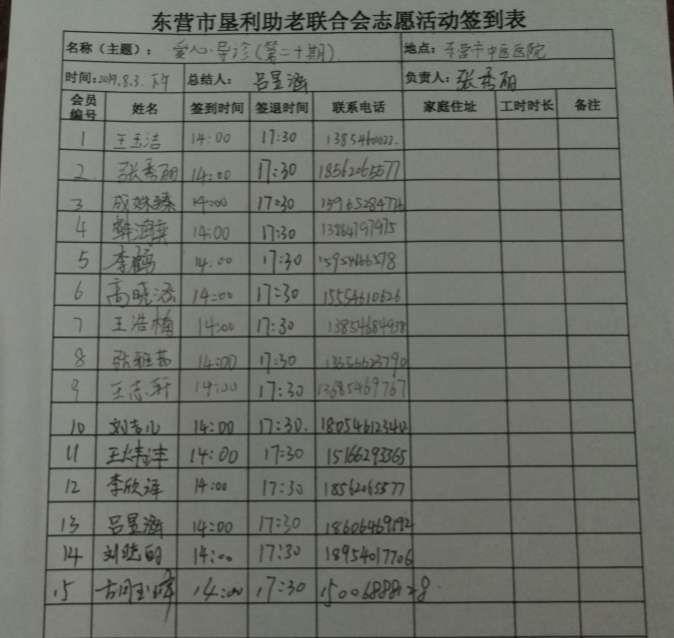 东营市垦利助老联合会志愿活动签到表
名称(主题): 爱心导诊(第二十期) 地点: 东营市中医医院
时间: 2019.8.3.下午 总结人: 吕昱涵 负责人: 张秀丽
会员编号 姓名 签到时间 签退时间 联系电话 家庭住址 工时时长 备注
1 王玉洁 14:00 17:30
2 张秀丽 14:00 17:30 18562065577
3 14:00 17:30
4 14:00 17:30 13864797975
5 李鹤 14:00 17:30 15954666578
6 高晓涵 14:00 17:30 15554610626
7 王浩楠 14:00 17:30 13854684938
8 张雅茹 14:00 17:30
9 王志轩 14:00 17:30 13685469767
10 14:00 17:30. 18054612340
11 14:00 17:30 15166293365
12 李欣泽 14:00 17:30 18562065577
13 吕昱涵 14:00 17:30 18606469192
14 刘晓明 14:00 17:30 18954017706
15 14:00 17:30